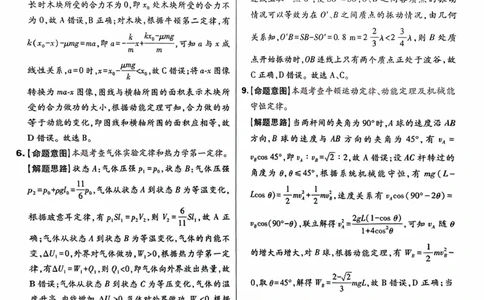 长时木块所受的合力不为0,即x₀处木块所受的合力不
为0,故A错误,B正确;对木块,根据牛顿第二定律,有
k(x₀-x)-μmg=ma,即a=-k/m x+(kx₀-μmg)/m,可知a与x成
线性关系,a=0时,x=x₀-μmg/k<x₀,故C错误;将a-x图像
转换为ma-x图像,图线与横轴所围的面积表示木块所
受的合力做功的大小,根据动能定理可知,合力做的功
等于动能的变化,即图线和横轴所围的面积相等,故
D错误。故选B。
6.【命题意图】本题考查气体实验定律和热力学第一定律。
【解题思路】状态A:气体压强p₁=p₀,状态B:气体压强
p₂=p₀+ρgl₀=11/6 p₀,气体从状态A到状态B为等温变化,
根据玻意耳定律,有p₁Sl₁=p₂V₂,则V₂=6/11 Sl₁,故A正
确;气体从状态A到状态B为等温变化,气体的内能不
变,ΔU₁=0,外界对气体做功,W₁>0,根据热力学第一定
律,有ΔU₁=W₁+Q₁,则Q₁<0,即气体向外界放出热量,故
B错误;气体从状态B到状态C为等压变化,气体的温
情况可以等效为在O'、B之间质点的振动情况,由几何
关系知,O'B=SB-SO'=0.8 m=2 2/3 λ<2 3/4 λ,则B处质
点开始振动时,OB连线上只有两个质点正处于波谷,故
C正确,D错误。故选A、C。
9.【命题意图】本题考查牛顿运动定律、动能定理及机械能
守恒定律。
【解题思路】当两杆间的夹角为90°时,A球的速度沿AB
方向,B球的速度与AB方向的夹角为45°,有vA=
vBcos 45°,即vA:vB=√2:2,故A错误;设AC杆转过的
角度为θ,θ≤45°,根据系统机械能守恒,有mg(L-
Lcos θ)=1/2 mvA²+1/2 mvB²,速度关系有vAcos(90°-2θ)=
vBcos(90°-θ),联立解得vA²=2gL(1-cos θ)/(1+4cos²θ),可知vA随θ
的增大而增大,对B球,根据动能定理,有WB=1/2 mvB²-
0,取θ=45°,解得WB=(2-√2)/3 mgL,故B错误,D正确;当